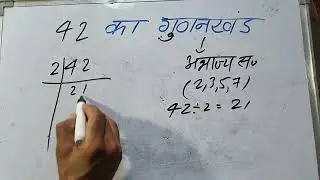 42 का गुणनखंड
↓
अभाज्य सं०
(2,3,5,7)
2|42
21
42÷2=21